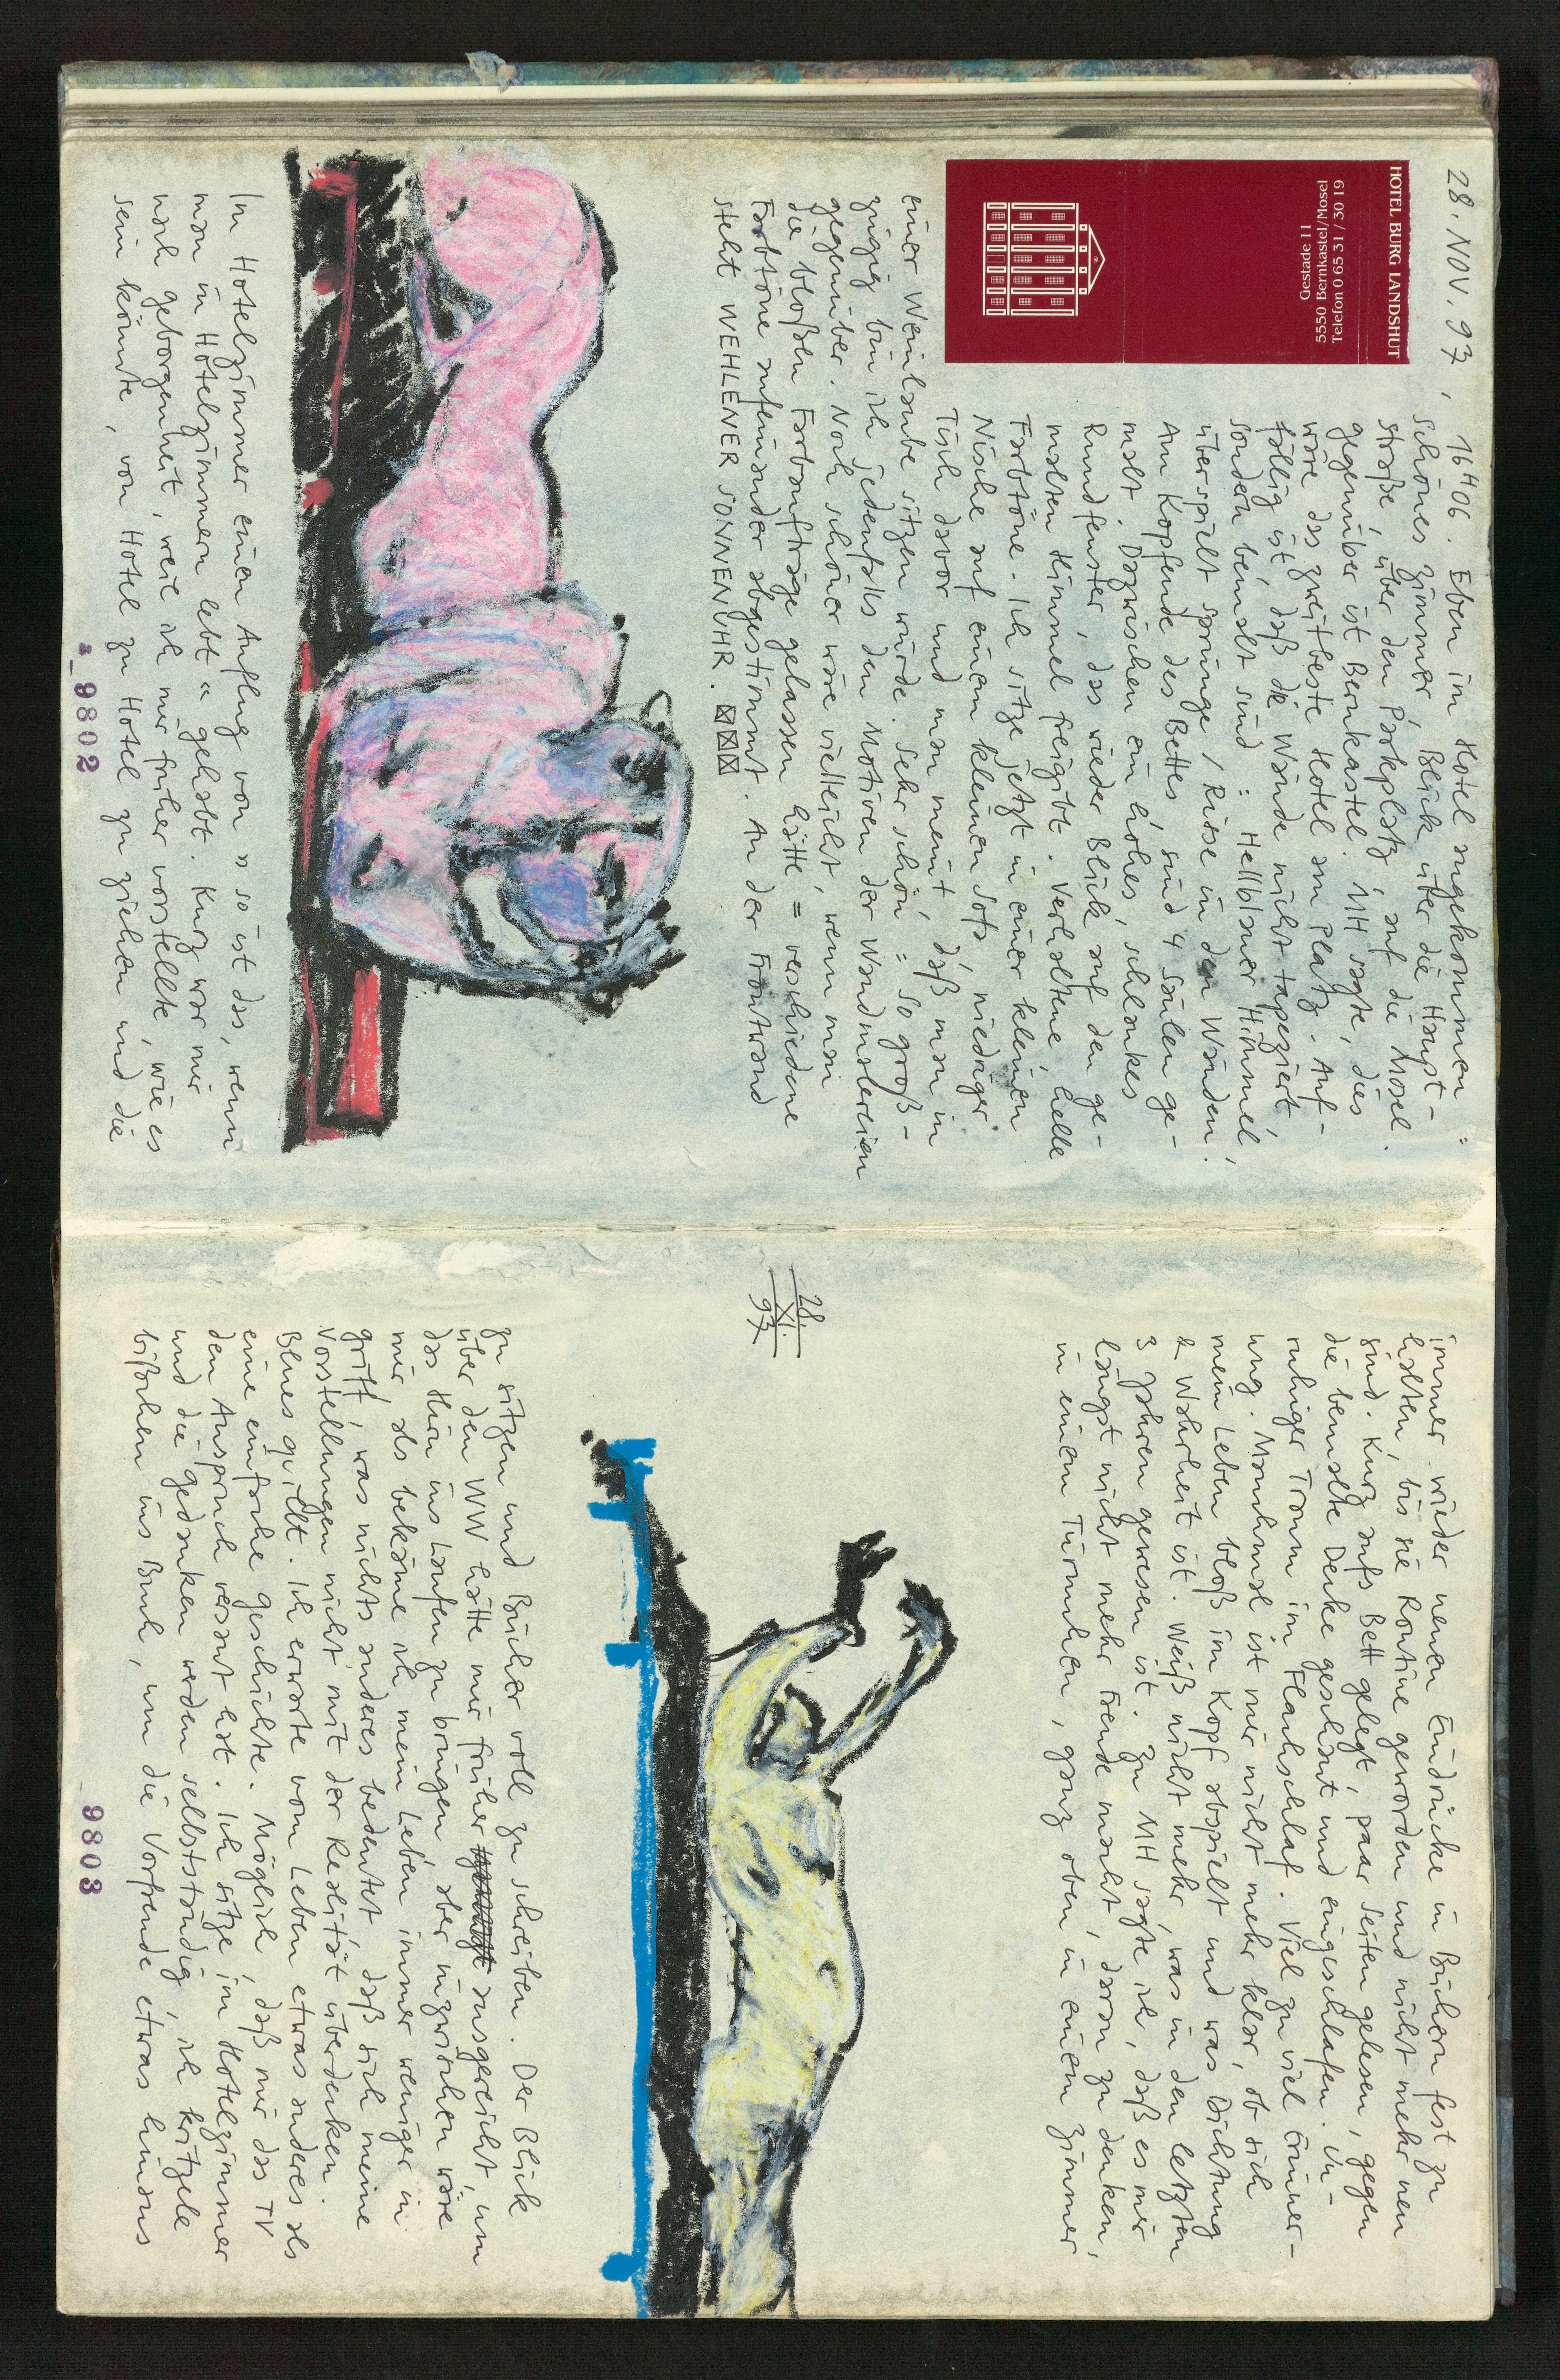 28. NOV. 93,
HOTEL BURG LANDSHUT
Gestade 11
5550 Bernkastel/Mosel
Telefon 0 65 31 / 30 19
16H06. Eben im Hotel angekommen:
schönes Zimmer, Blick über die Haupt-
straße, über den Parkplatz, auf die Mosel.
gegenüber ist Bernkastel. MH sagte, dies
wäre das zweitbeste Hotel am Platz. Auf-
fällig ist, daß die Wände nicht tapeziert,
sondern bemalt sind: Hellblauer Himmel,
überspielt Sprünge / Risse in den Wänden!
Am Kopfende des Bettes sind 4 Säulen ge-
malt. Dazwischen ein hohes, schlankes
Rundfenster, das wieder Blick auf den ge-
malten Himmel freigibt. Verhaltene helle
Farbtöne. Ich sitze jetzt in einer kleinen
Nische auf einem kleinen Sofa, niedriger
Tisch davor und man meint, daß man in
einer Weinlaube sitzen würde. Sehr schön = so groß-
zügig bin ich jedenfalls den Motiven der Wandmalereien
gegenüber. Noch schöner wäre vielleicht, wenn man
die bloßen Farbaufträge gelassen hätte = verschiedene
Farbtöne aufeinander abgestimmt. An der Frontwand
steht WEHLENER SONNENUHR.
Im Hotelzimmer einen Anflug von "so ist das, wenn
man in Hotelzimmern lebt" gehabt. Kurz war mir
nach geborgenheit, weil ich mir früher vorstellte, wie es
sein könnte, von Hotel zu Hotel zu ziehen und die
9802
immer wieder neuen Eindrücke in Büchern fest zu
halten, bis sie Routine geworden und nicht mehr neu
sind. Kurz aufs Bett gelegt, paar Seiten gelesen, gegen
die bemalte Decke geschaut und eingeschlafen. Un-
ruhiger Traum im Flachschlaf. Viel zu viel Erinner-
ung. Manchmal ist mir nicht mehr klar, ob sich
mein Leben bloß im Kopf abspielt und was Dichtung
& Wahrheit ist. Weiß nicht mehr, was in den letzten
3 Jahren gewesen ist. Zu MH sagte ich, daß es mir
längst nicht mehr Freude macht, daran zu denken,
in einem Türmchen, ganz oben, in einem Zimmer
28.
XI.
93
zu sitzen und Bücher voll zu schreiben. Der Blick
über den WW hätte mir früher ausgereicht, um
das Hirn ins Laufen zu bringen aber inzwischen wäre
mir als bekäme ich mein Leben immer weniger in
griff, was nichts anderes bedeutet daß sich meine
Vorstellungen nicht mit der Realität überdecken.
Blues quillt. Ich erwarte vom Leben etwas anderes als
eine einfache geschichte. Möglich, daß mir das TV
den Anspruch versaut hat. Ich sitze im Hotelzimmer
und die gedanken werden selbstständig, ich kritzele
bißchen ins Buch, um die Vorfreude etwas hinaus
9803